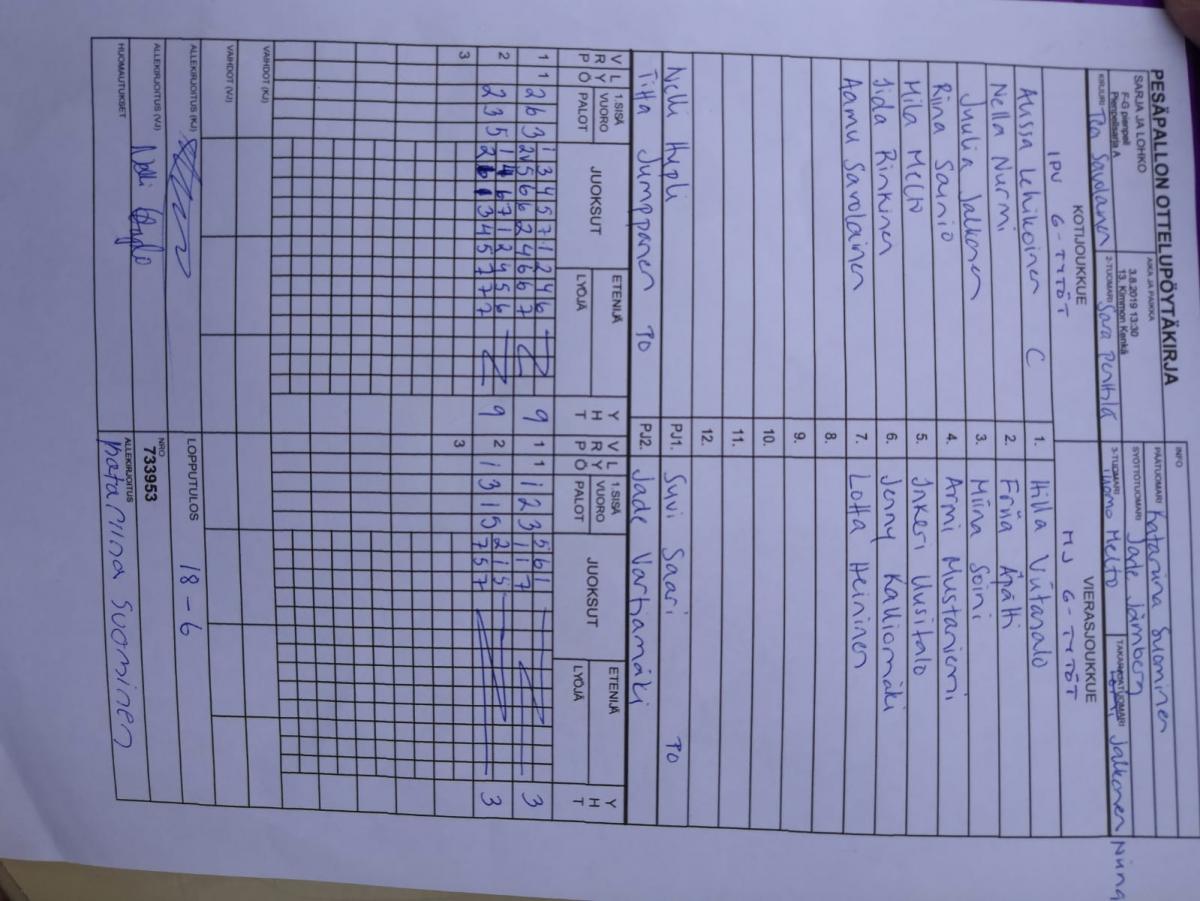 PESÄPALLON OTTELUPÖYTÄKIRJA
INFO
SARJA JA LOHKO
F-G pienpeli
Pienpelisarja A
AIKA JA PAIKKA
3.8.2019 13:30
13. Kimmon Kenkä
PÄÄTUOMARI Katariina Suominen
SYÖTTÖTUOMARI Jade Jämberg
KIRJURI Tea Savolainen
2-TUOMARI Sara Penttilä
3-TUOMARI Tuomo Melto
TAKARAJATUOMARI Jalkonen Niina
KOTIJOUKKUE
IPV G-TYTÖT
VIERASJOUKKUE
MJ G-TYTÖT
Aussa Lehikoinen C 1. Hilla Viitasalo
Nella Nurmi 2. Friia Äpätti
Juulia Jalkonen 3. Miina Soini
Riina Sainio 4. Armi Mustaniemi
Mila Melto 5. Inkeri Uusitalo
Iida Rinkinen 6. Jenny Kalliomäki
Aamu Savolainen 7. Lotta Heininen
8.
9.
10.
11.
12.
Nelli Hypli PJ1. Suvi Saari PO
Titta Jumppanen PO PJ2. Jade Vartiamäki
V R P L Y Ö 1.SISÄ VUORO PALOT JUOKSUT ETENIJÄ LYÖJÄ Y H T
V R P L Y Ö 1.SISÄ VUORO PALOT JUOKSUT ETENIJÄ LYÖJÄ Y H T
1 1 2 6 3 1 3 4 5 7 1 2 4 6 9
2 5 6 6 2 4 6 6 7
1 1 1 2 3 5 6 1 3
1 1 7
2 2 3 5 1 4 6 7 1 2 4 5 6 9
2 6 1 3 4 5 7 7 7
2 1 3 1 5 2 1 5 3
7 5 7
3
3
VAIHDOT (KJ)
VAIHDOT (VJ)
ALLEKIRJOITUS (KJ)
LOPPUTULOS 18 - 6
ALLEKIRJOITUS (VJ) Nelli Hypli
NRO
733953
HUOMAUTUKSET
ALLEKIRJOITUS
Katariina Suominen